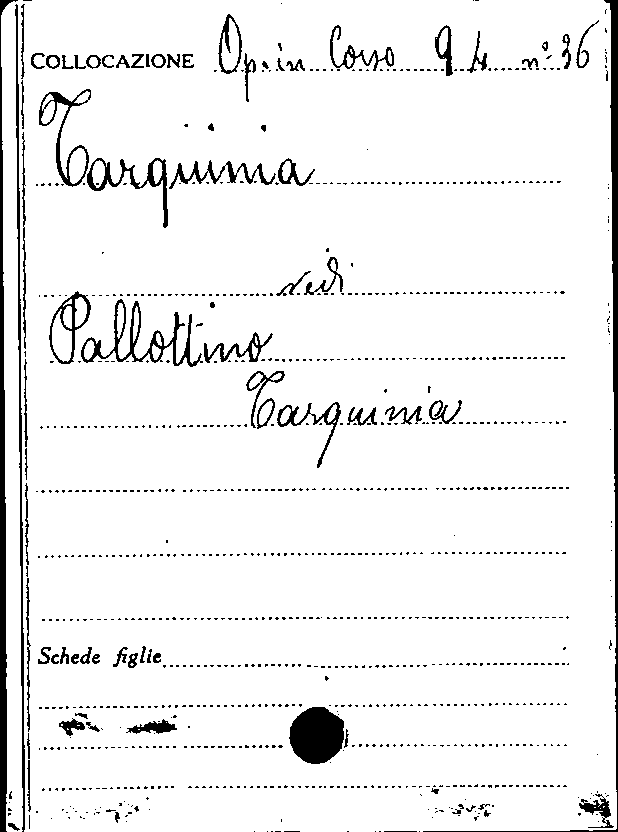 COLLOCAZIONE Op. in Corso 9 4 n° 36
Tarquinia
vedi
Pallottino
Tarquinia
Schede figlie